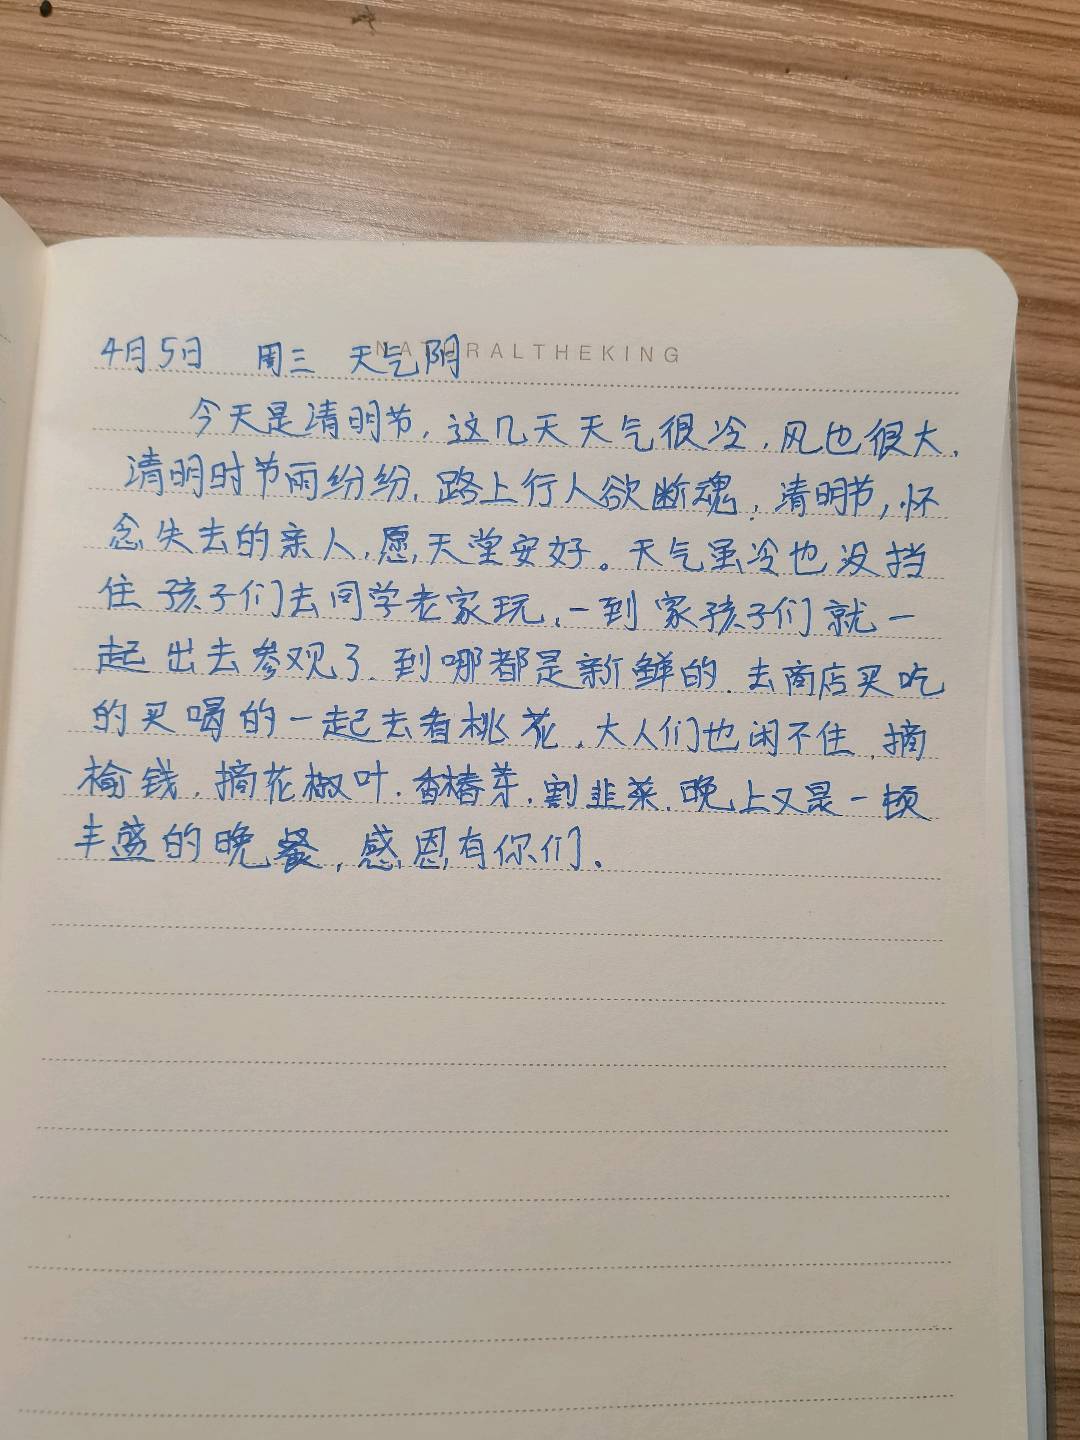 NATURALTHEKING
4月5日 周三 天气阴
今天是清明节,这几天天气很冷,风也很大,
清明时节雨纷纷,路上行人欲断魂,清明节,怀
念失去的亲人,愿天堂安好。天气虽冷也没挡
住孩子们去同学老家玩,一到家孩子们就一
起出去参观了,到哪都是新鲜的,去商店买吃
的买喝的一起去看桃花,大人们也闲不住,摘
榆钱,摘花椒叶,香椿芽,割韭菜,晚上又是一顿
丰盛的晚餐,感恩有你们。